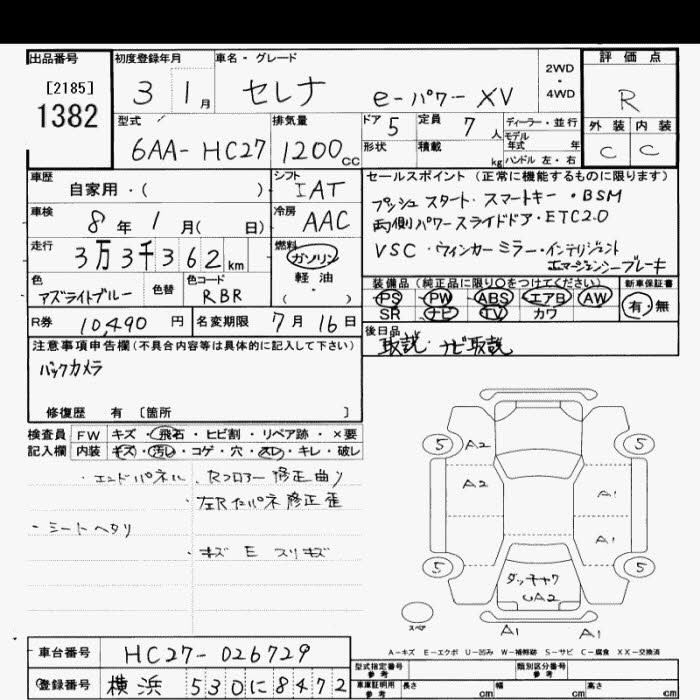 出品番号
[2185]
1382
初度登録年月
3 1月
車名・グレード
セレナ e-パワー XV
2WD
・
4WD
評価点
R
外装 内装
C C
型式
6AA-HC27
排気量
1200cc
ドア 5
形状
定員 7人
積載 kg
ディーラー・並行
モデル
年式 年
ハンドル 左・右
車歴
自家用・( )
シフト
IAT
セールスポイント (正常に機能するものに限ります)
プッシュスタート・スマートキー・BSM
両側パワースライドドア・ETC2.0
VSC・ウィンカーミラー・インテリジェント
エマージェンシーブレーキ
車検
8年 1月( 日)
冷房
AAC
走行
3万3千362km
燃料
ガソリン
軽・油
( ・ )
色
アズライトブルー
色替
色コード
RBR
装備品 (純正品に限り○をつけてください)
PS PW ABS エアB AW
SR ナビ TV カワ
新車保証書
有・無
R券 10,490円
名変期限 7月16日
後日品
取説・ナビ取説
注意事項申告欄(不具合内容等は具体的に記入して下さい)
バックカメラ
修復歴 有 〔箇所 〕
検査員
記入欄
FW キズ・飛石・ヒビ割・リペア跡・×要
内装 キズ・汚レ・コゲ・穴・スレ・キレ・破レ
・エンドパネル、Rフロアー修正曲り
・左Rインパネ修正歪
・シートヘタリ
・キズ E スリキズ
5 A2 5
A2
A1
A1
5 5
UA2
スペア
A1 A1
A-キズ E-エクボ U-凹み W-補修跡 S-サビ C-腐食 XX-交換済
車台番号 HC27-026729
登録番号 横浜 530に8472
型式指定番号
参考
類別区分番号
参考
車庫証明用
参考
長さ cm
幅 cm
高さ cm